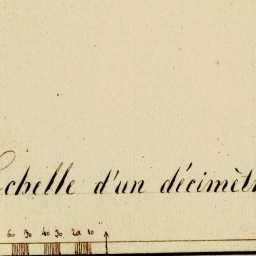 Echelle d'un décimètr
60 50 40 30 20 10